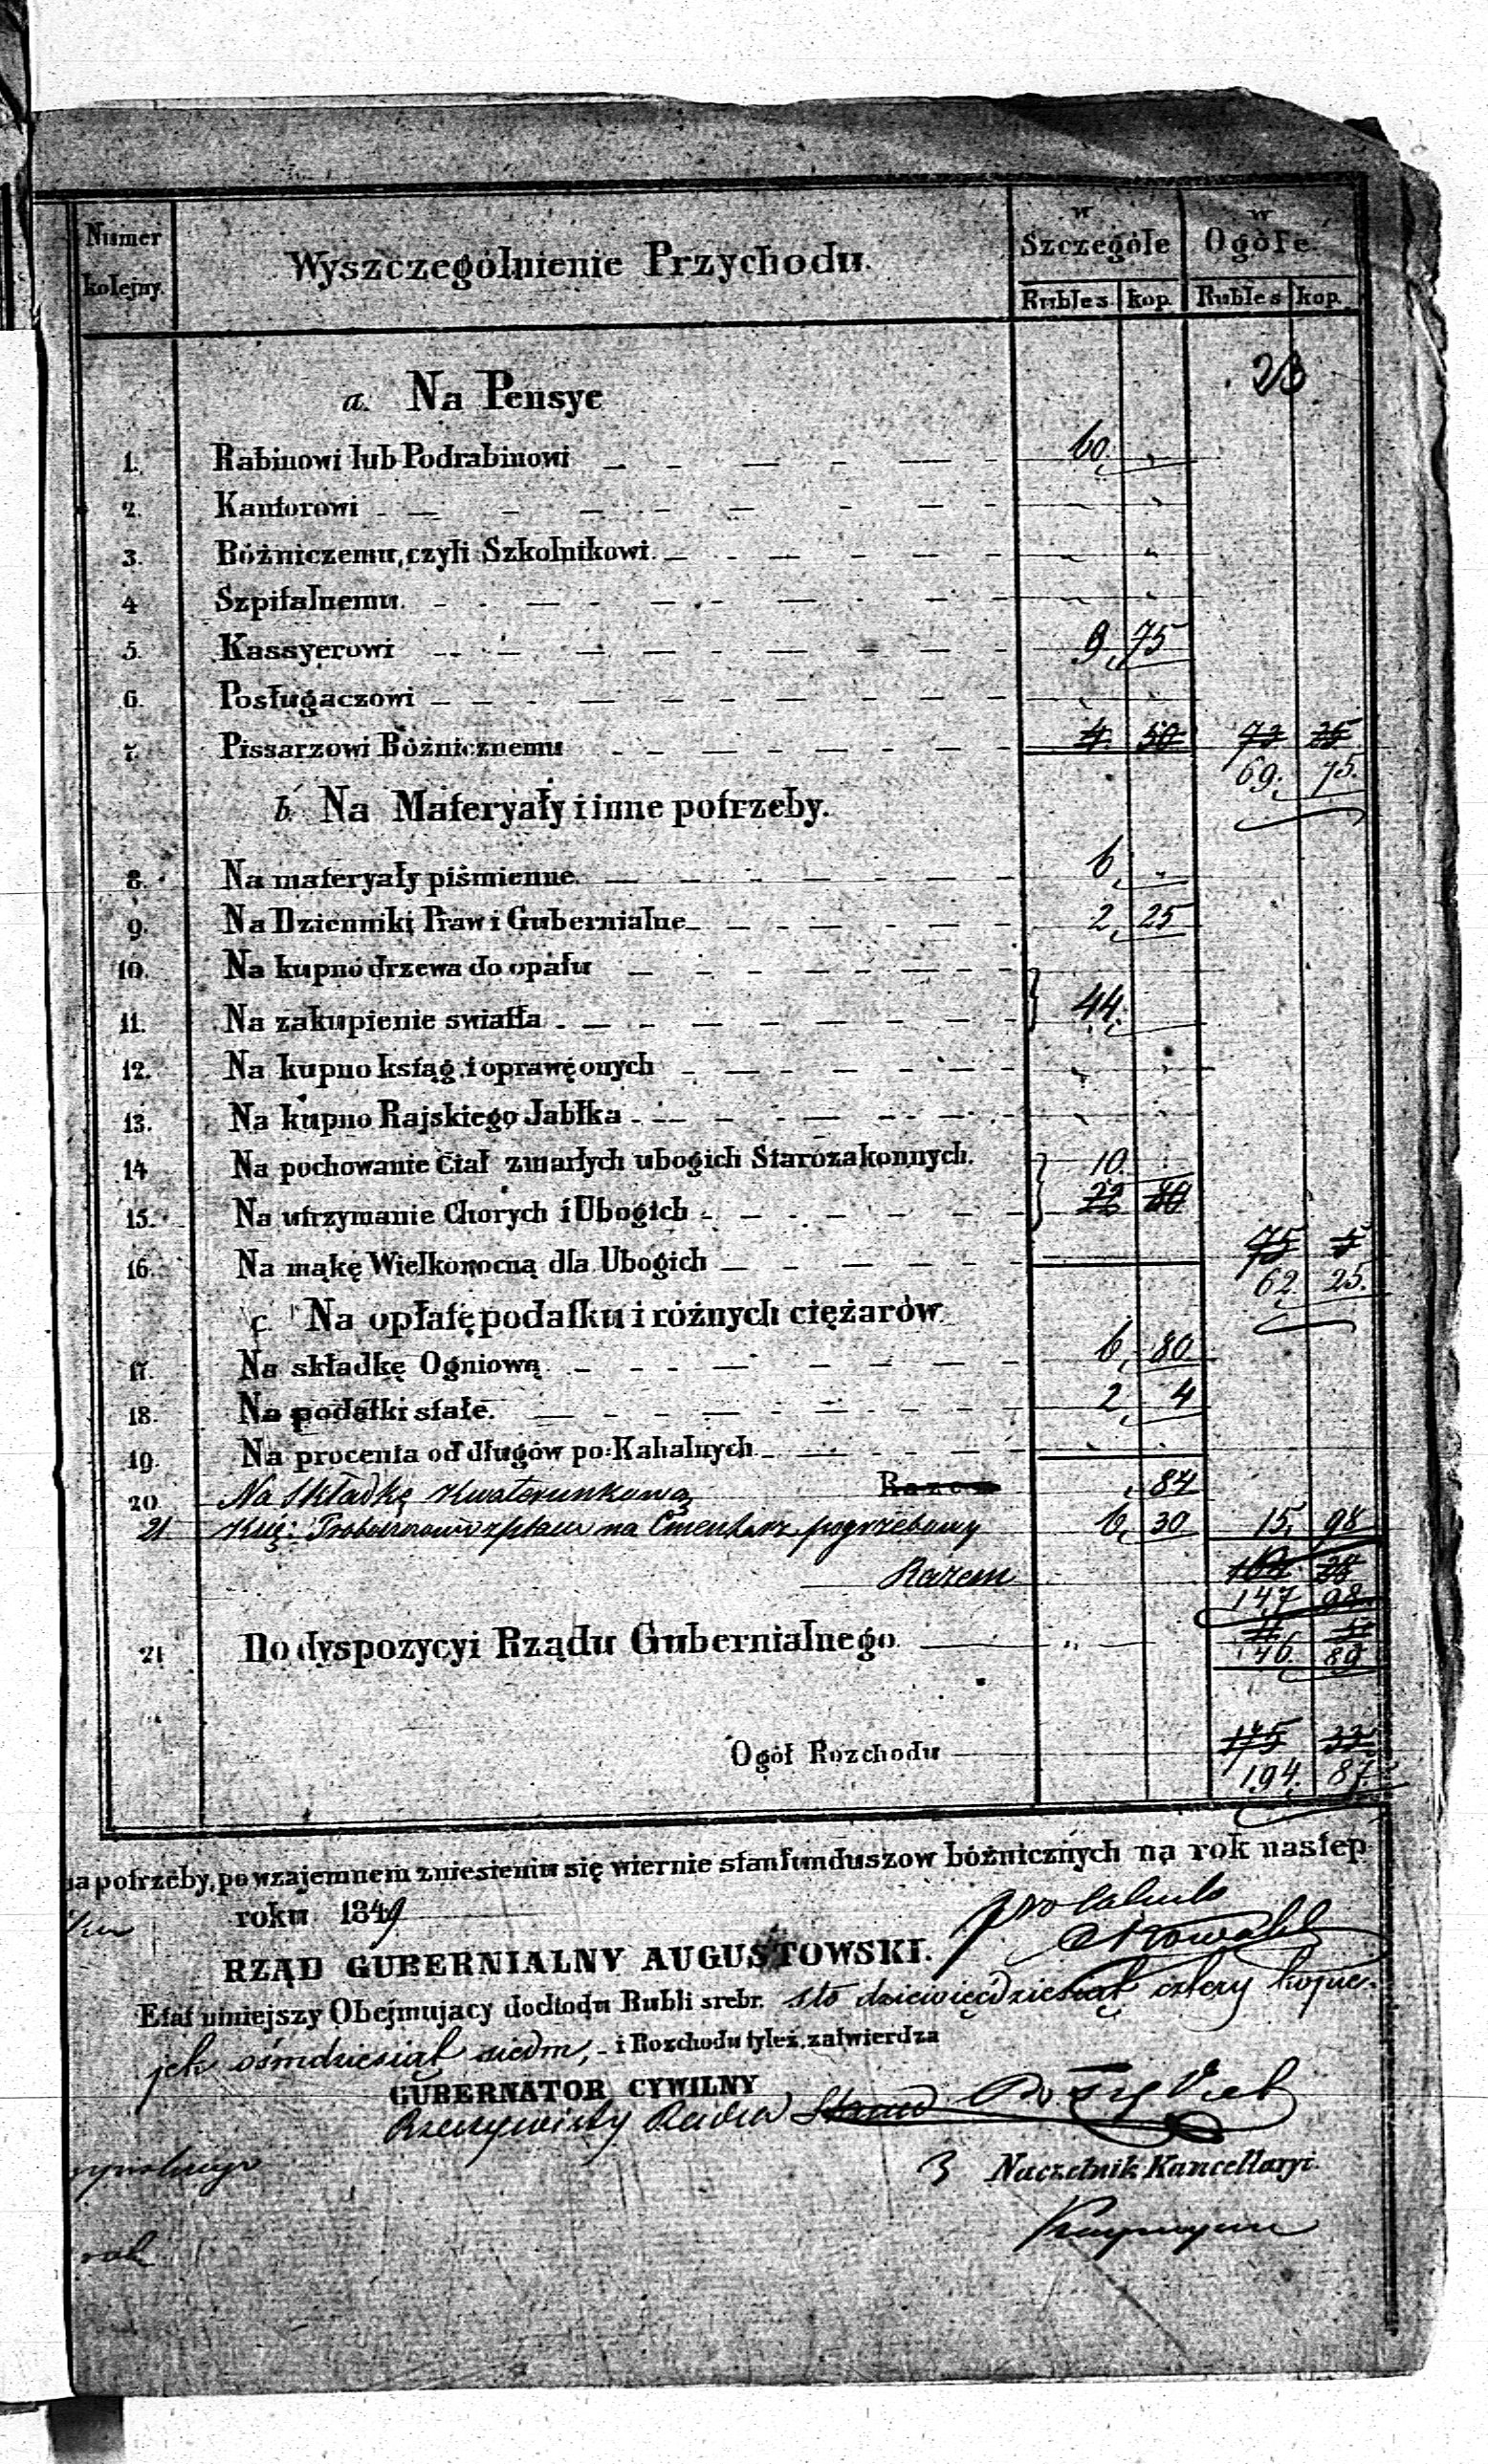 Numer kolejny.
Wyszczególnienie Przychodu.
w Szczególe
w Ogóle.
Rubles kop. Rubles kop.
23
a. Na Pensye
1. Rabinowi lub Podrabinowi 60.
2. Kantorowi
3. Bóżniczemu, czyli Szkolnikowi.
4 Szpitalnemu.
5. Kassyerowi 9, 75
6. Posługaczowi
7. Pissarzowi Bóżnicznemu 4. 50 73 25
69. 75.
b. Na Materyały i inne potrzeby.
8. Na materyały piśmienne. 6
9. Na Dzienniki Praw i Gubernialne 2, 25
10. Na kupno drzewa do opału
11. Na zakupienie swiatła 44.
12. Na kupno ksiąg i oprawę onych
13. Na kupno Rajskiego Jabłka
14 Na pochowanie Ciał zmarłych ubogich Starozakonnych. 10.
15. Na utrzymanie Chorych i Ubogich 22 80
16. Na mąkę Wielkonocną dla Ubogich 75 5
62. 25.
c. Na opłatę podatku i różnych ciężarów
17. Na składkę Ogniową 6, 80
18. Na podatki stałe. 2, 4
19. Na procenta od długów po-Kahalnych
20 Na Składkę kwaterunkową Razem 84
21 Księ: Proboszczowi z placu na Cmentarz pogrzebowy 6, 30 15, 98
Razem
147 98
21 Do dyspozycyi Rządu Gubernialnego
46. 89
Ogół Rozchodu 175 33
194. 87.
na potrzeby, po wzajemnem zniesieniu się wiernie stan funduszow bóżnicznych na rok nastep
roku 1849
RZĄD GUBERNIALNY AUGUSTOWSKI.
Etat niniejszy Obejmujący dochodu Rubli srebr. sto dziewięćdziesiąt cztery kopie-
jek ośmdziesiąt siedm, - i Rozchodu tyleż, zatwierdza
GUBERNATOR CYWILNY
Rzeczywisty Radca Stanu
Naczelnik Kancellaryi.